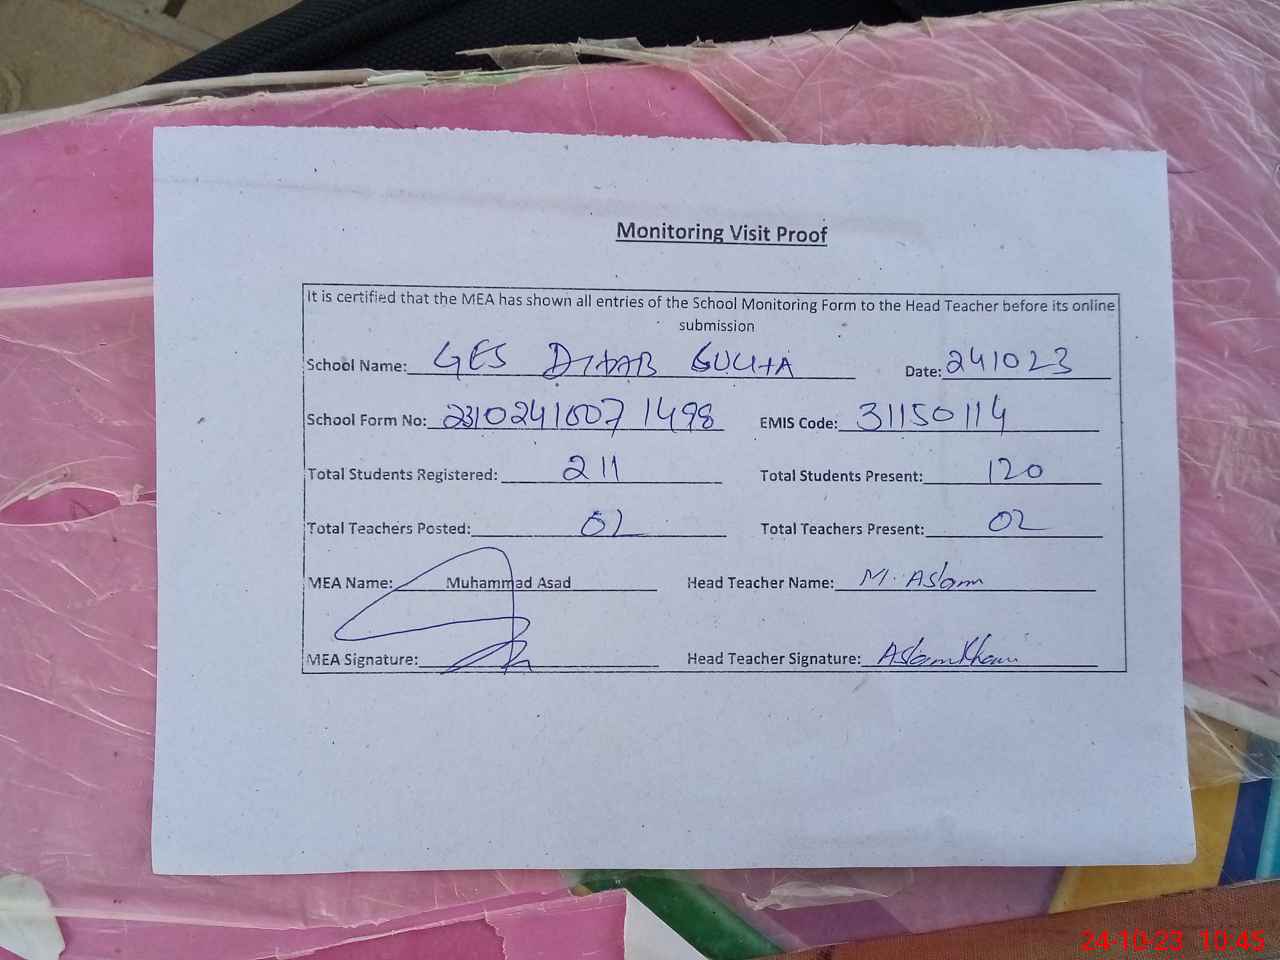 Monitoring Visit Proof
It is certified that the MEA has shown all entries of the School Monitoring Form to the Head Teacher before its online
submission
School Name: GES Date: 241023
School Form No: 2310241007 1498 EMIS Code: 31150114
Total Students Registered: 211 Total Students Present: 120
Total Teachers Posted: 02 Total Teachers Present: 02
MEA Name: Muhammad Asad Head Teacher Name: M. Aslam
MEA Signature: Head Teacher Signature: Aslam Khan
24-10-23 10:45